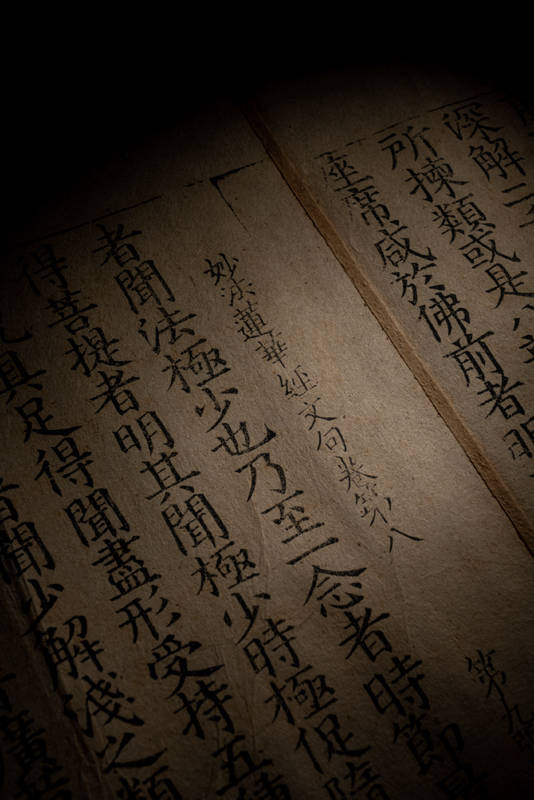 深解二
所揀類或是八
座席咸於佛前者明
第九
妙法蓮華經文句卷第八
者聞法極少也乃至一念者時節
得菩提者明其聞極少時極促隨
具足得聞盡形受持五
者聞少解淺之類
廣